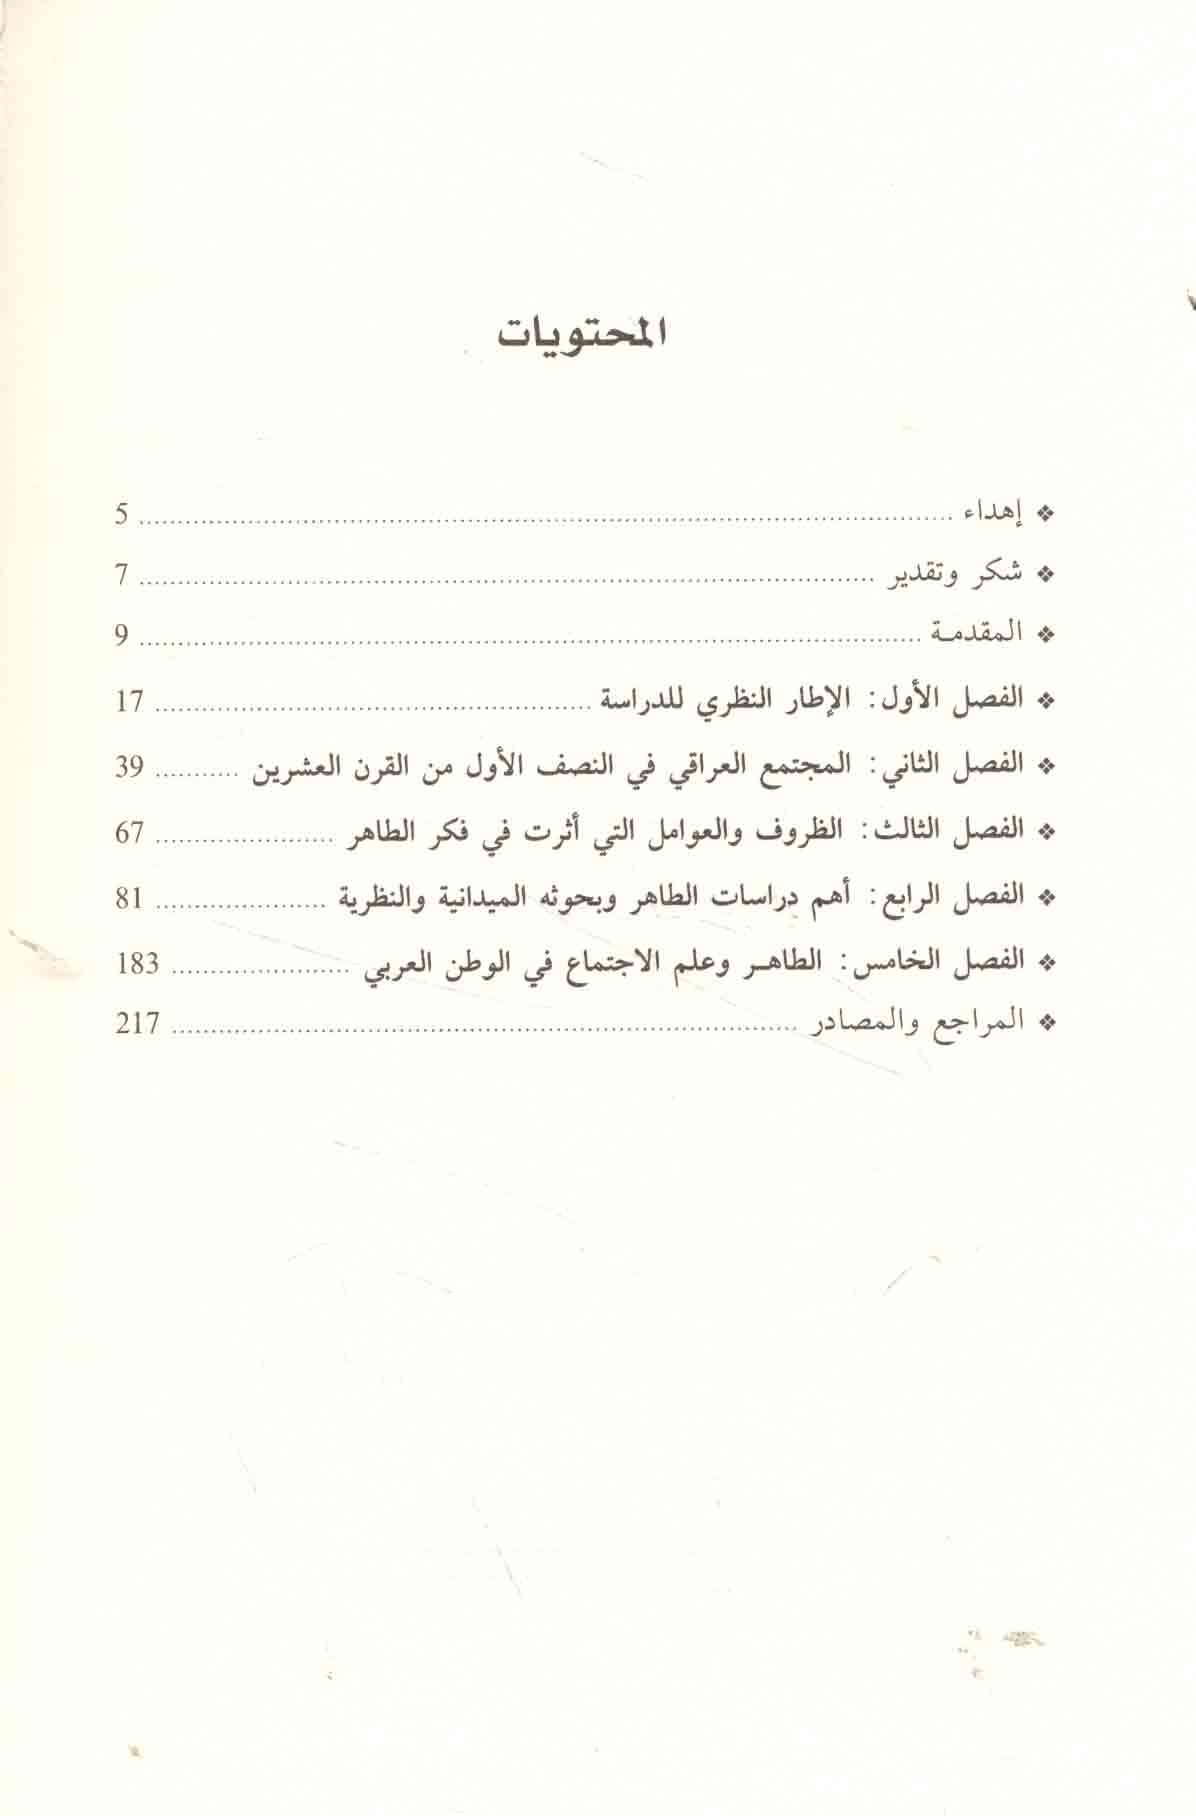 المحتويات
❖ إهداء ........................................ 5
❖ شكر وتقدير ........................................ 7
❖ المقدمة ........................................ 9
❖ الفصل الأول: الإطار النظري للدراسة ........................................ 17
❖ الفصل الثاني: المجتمع العراقي في النصف الأول من القرن العشرين ........... 39
❖ الفصل الثالث: الظروف والعوامل التي أثرت في فكر الطاهر ....................... 67
❖ الفصل الرابع: أهم دراسات الطاهر وبحوثه الميدانية والنظرية ...................... 81
❖ الفصل الخامس: الطاهر وعلم الاجتماع في الوطن العربي ....................... 183
❖ المراجع والمصادر ........................................ 217